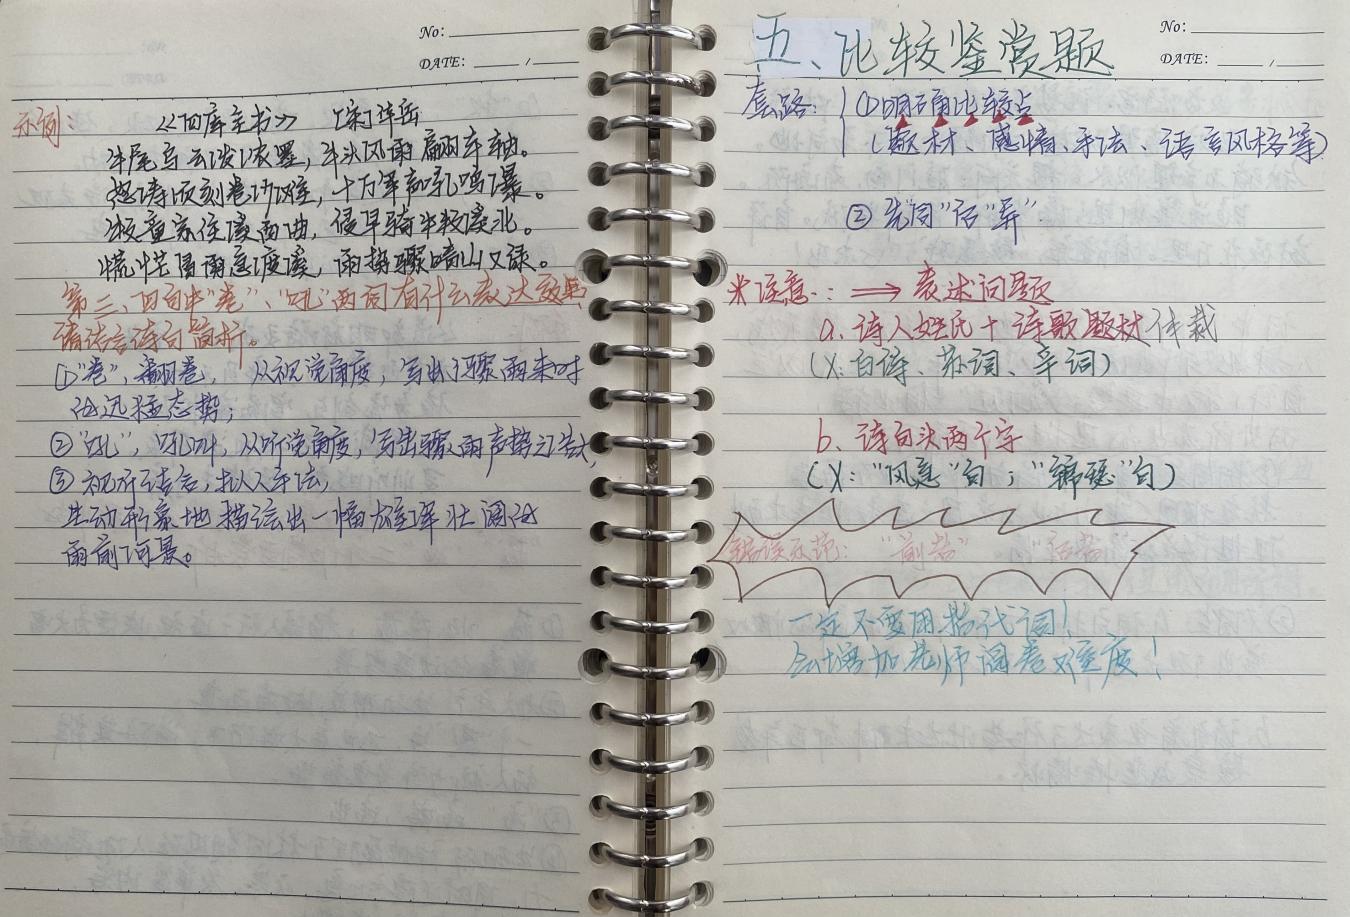 No:
DATE: /
示例：
《四库全书》
牛尾乌云泼浓墨，牛头风雨翻车轴。
怒涛顷刻卷沙滩，十万军声吼鸣瀑。
牧童家住溪西曲，侵早骑牛牧溪北。
慌忙冒雨急渡溪，雨势骤晴山又绿。
第三、四句中“卷”、“吼”两词有什么表达效果
请结合诗句简析。
①“卷”，翻卷，从视觉角度，写出了骤雨来时
的迅猛态势；
②“吼”，吼叫，从听觉角度，写出骤雨声势之浩大，
③视听结合，拟人手法，
生动形象地描绘出一幅雄浑壮阔的
雨前河景。
No:
DATE: /
五、比较鉴赏题
套路：①明确比较点
（题材、感情、手法、语言风格等）
②先“同”后“异”
※注意：⟹表述问题
a.诗人姓氏+诗歌题材体裁
（X：白诗、苏词、辛词）
b、诗句头两个字
（X：“风急”句；“锦瑟”句）
错误示范：“前者”“后者”
一定不要用指代词！
会增加老师阅卷难度！